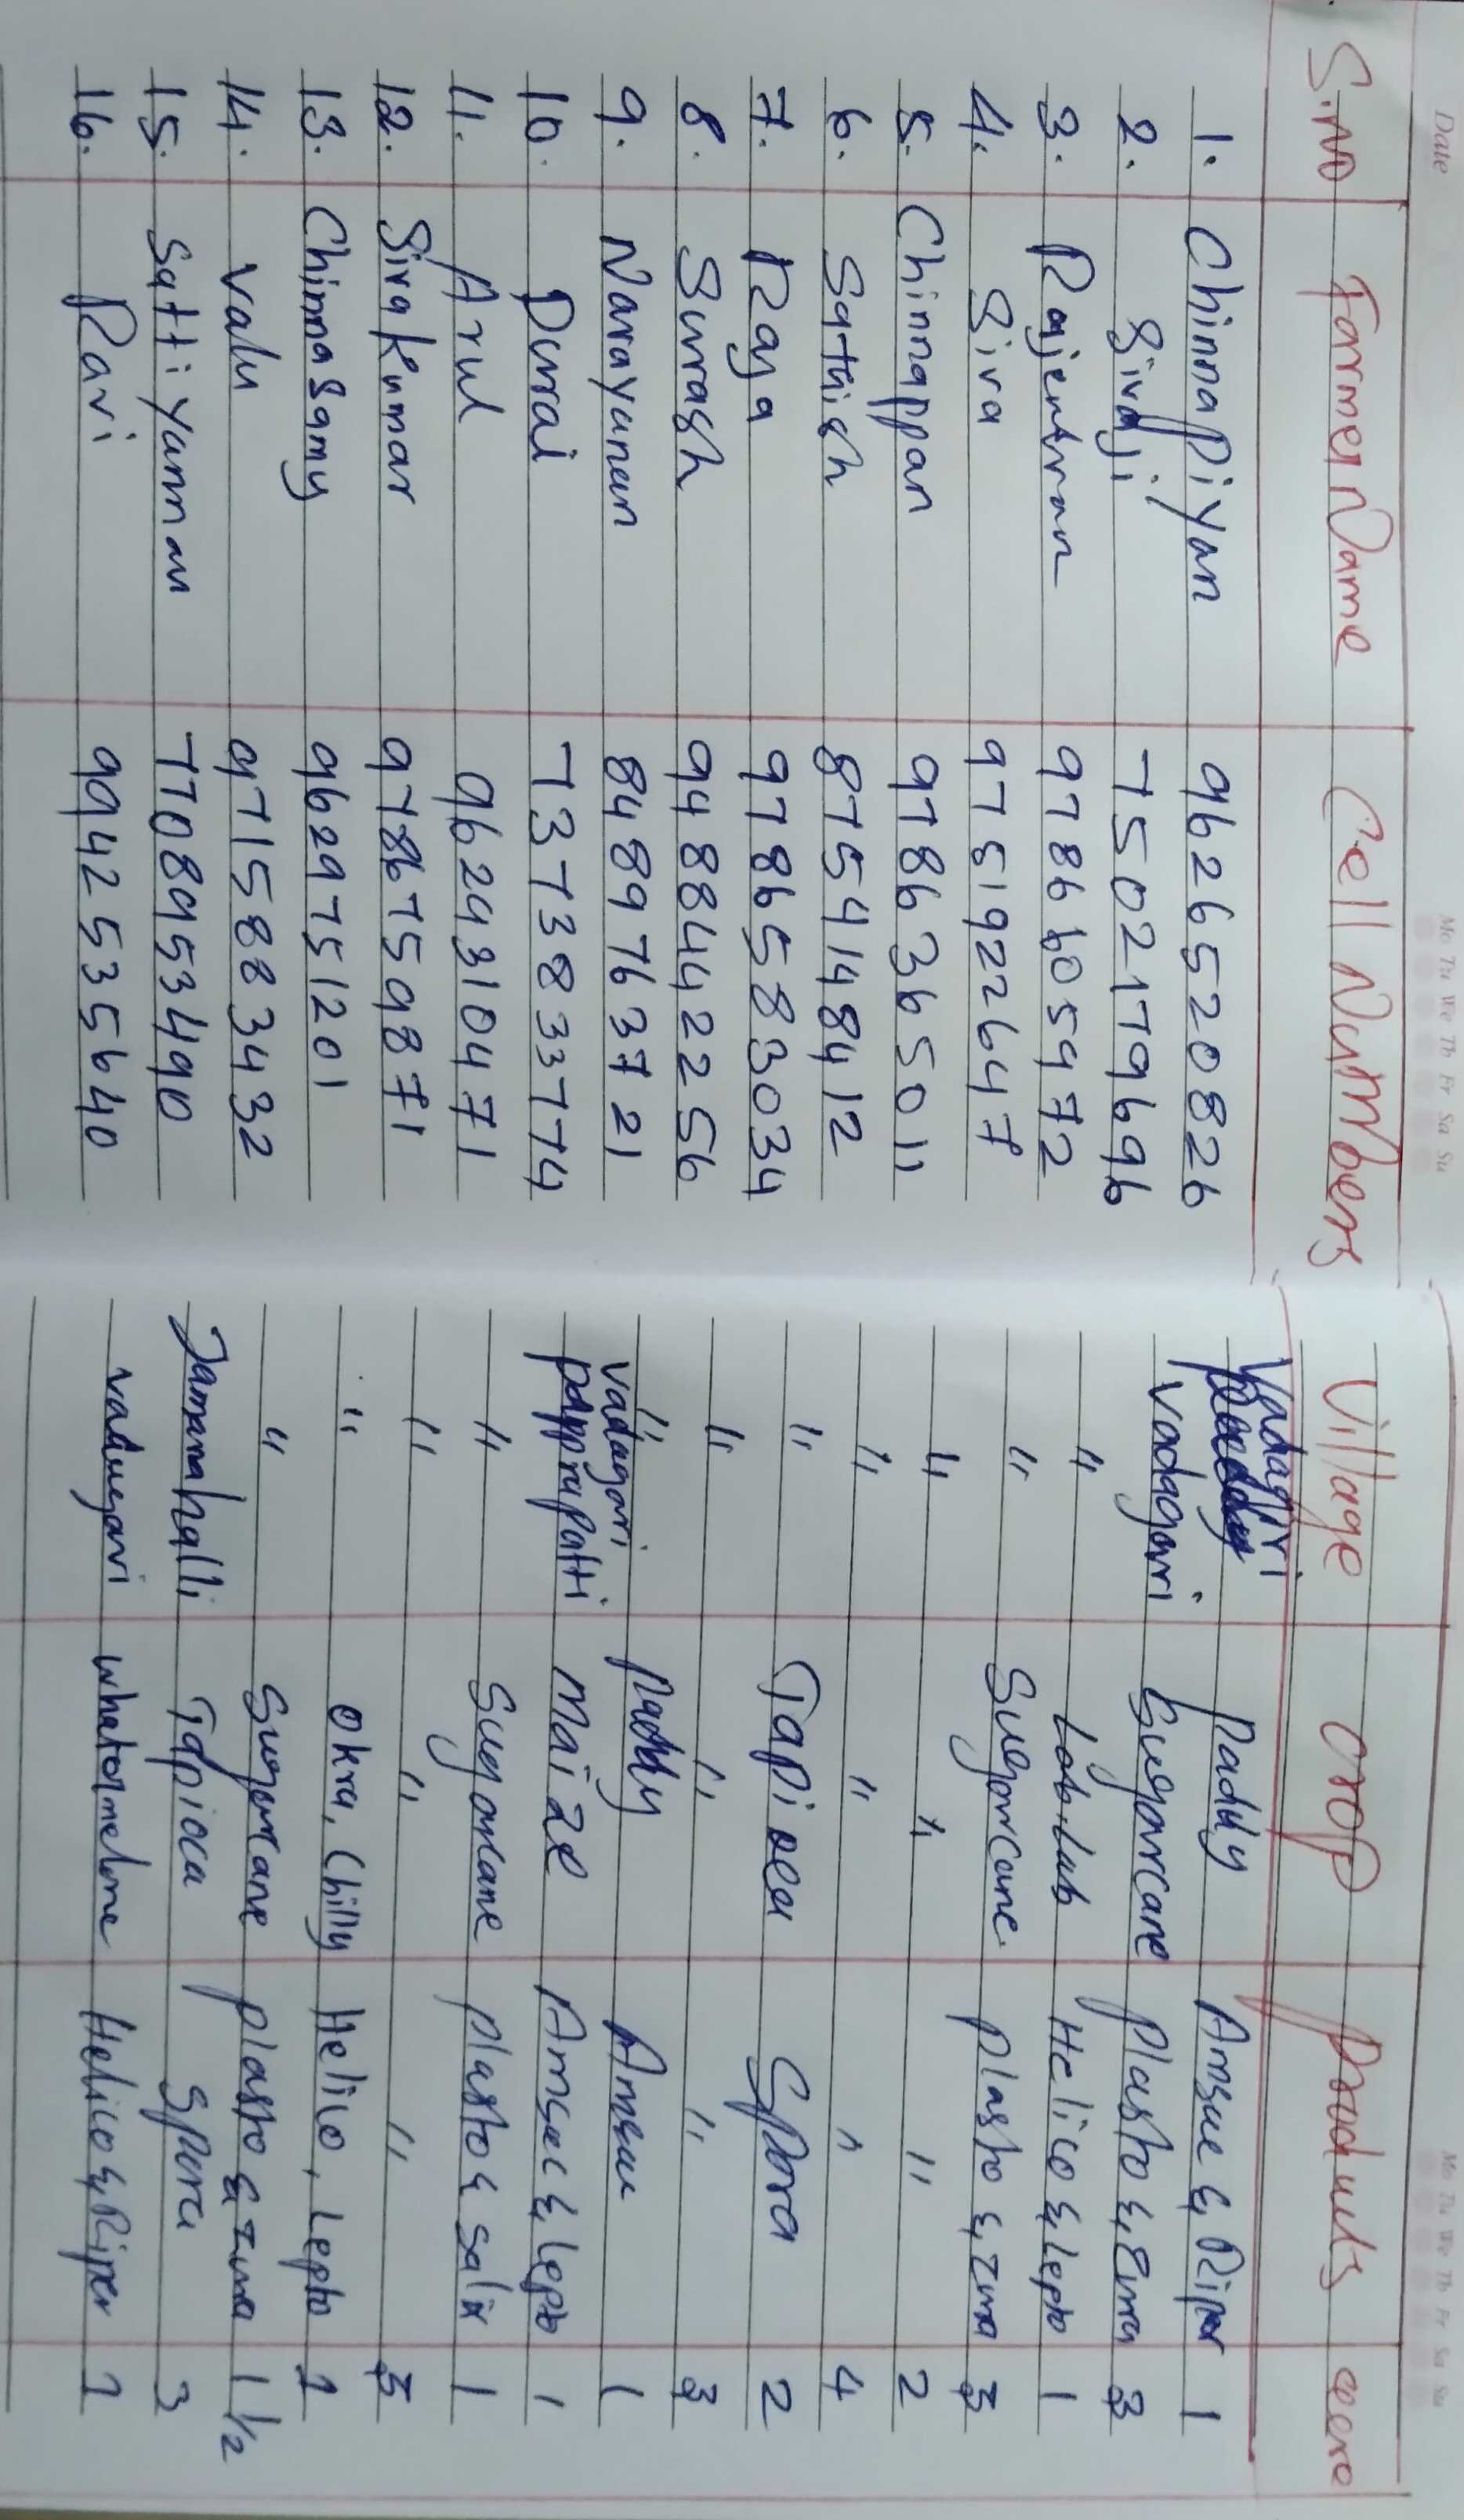 Date Mo Tu We Th Fr Sa Su Mo Tu We Th Fr Sa Su
S.no Farmer Name Cell Numbers Village crop products acere
1. Chinnapiyan 9626520826 Vadagiri Paddy Amsue & Riper 1
2. Sivaji 7502179696 Vadagari Sugarcane Plasto & Zma 3
3. Rajentran 9786605972 " Lab.Lab Helico & Lepto 1
4. Siva 9751922647 " Sugarcane. Plasto & Zma 3
5. Chinnappan 9786365011 " " " 2
6. Sathish 8754148412 " " " 4
7. Raja 9786583034 " Tapioca Spora 2
8. Surash 9488442256 " " " 3
9. Narayanan 8489763721 " Vadagari Paddy Amsu 1
10. Durai 7373833774 pappirapatti Maize Amsec & Lepto 1
11. Arul 9629310471 " Sugarcane Plasto & Salix 1
12. Sivakumar 9786759871 " " " 3
13. Chinnasamy 9629751201 " Okra, Chilly Helico, Lepto 1
14. Valu 9715883432 " Sugarcane Plasto & Zma 1 1/2
15. Sattiyamman 7708953490 Jammanahalli Tapioca Spora 3
16. Ravi 9942535640 Vadugari Whatormelone Helico & Riper 1